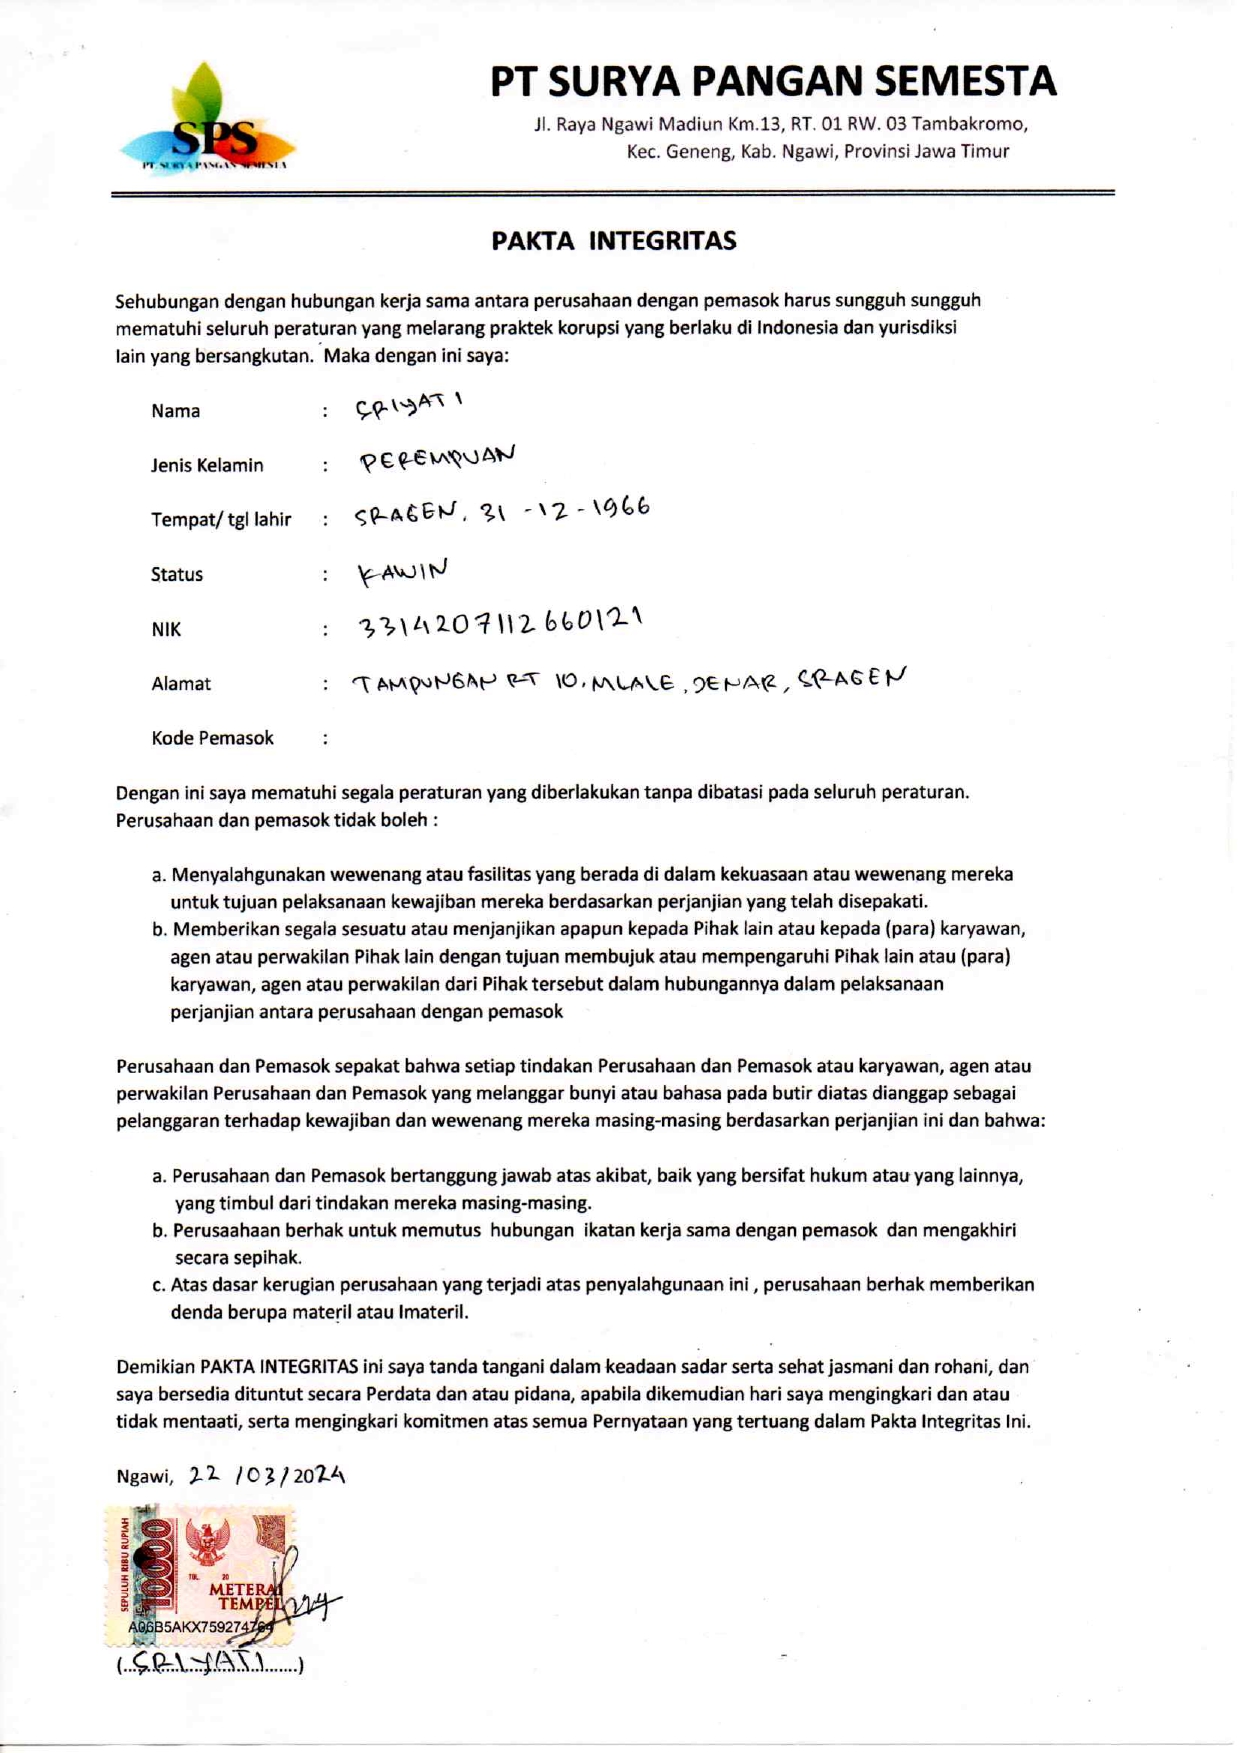 SPS
PT. SURYA PANGAN SEMESTA
PT SURYA PANGAN SEMESTA
Jl. Raya Ngawi Madiun Km.13, RT. 01 RW. 03 Tambakromo,
Kec. Geneng, Kab. Ngawi, Provinsi Jawa Timur
PAKTA INTEGRITAS
Sehubungan dengan hubungan kerja sama antara perusahaan dengan pemasok harus sungguh sungguh
mematuhi seluruh peraturan yang melarang praktek korupsi yang berlaku di Indonesia dan yurisdiksi
lain yang bersangkutan. Maka dengan ini saya:
Nama : SRIYATI
Jenis Kelamin : PEREMPUAN
Tempat/ tgl lahir : SRAGEN, 31 -12-1966
Status : KAWIN
NIK : 3314207112660121
Alamat : TAMPUNGAN RT 10, MLALE, JENAR, SRAGEN
Kode Pemasok :
Dengan ini saya mematuhi segala peraturan yang diberlakukan tanpa dibatasi pada seluruh peraturan.
Perusahaan dan pemasok tidak boleh :
a. Menyalahgunakan wewenang atau fasilitas yang berada di dalam kekuasaan atau wewenang mereka
untuk tujuan pelaksanaan kewajiban mereka berdasarkan perjanjian yang telah disepakati.
b. Memberikan segala sesuatu atau menjanjikan apapun kepada Pihak lain atau kepada (para) karyawan,
agen atau perwakilan Pihak lain dengan tujuan membujuk atau mempengaruhi Pihak lain atau (para)
karyawan, agen atau perwakilan dari Pihak tersebut dalam hubungannya dalam pelaksanaan
perjanjian antara perusahaan dengan pemasok
Perusahaan dan Pemasok sepakat bahwa setiap tindakan Perusahaan dan Pemasok atau karyawan, agen atau
perwakilan Perusahaan dan Pemasok yang melanggar bunyi atau bahasa pada butir diatas dianggap sebagai
pelanggaran terhadap kewajiban dan wewenang mereka masing-masing berdasarkan perjanjian ini dan bahwa:
a. Perusahaan dan Pemasok bertanggung jawab atas akibat, baik yang bersifat hukum atau yang lainnya,
yang timbul dari tindakan mereka masing-masing.
b. Perusaahaan berhak untuk memutus hubungan ikatan kerja sama dengan pemasok dan mengakhiri
secara sepihak.
c. Atas dasar kerugian perusahaan yang terjadi atas penyalahgunaan ini , perusahaan berhak memberikan
denda berupa materil atau Imateril.
Demikian PAKTA INTEGRITAS ini saya tanda tangani dalam keadaan sadar serta sehat jasmani dan rohani, dan
saya bersedia dituntut secara Perdata dan atau pidana, apabila dikemudian hari saya mengingkari dan atau
tidak mentaati, serta mengingkari komitmen atas semua Pernyataan yang tertuang dalam Pakta Integritas Ini.
Ngawi, 22 /03/2024
SEPULUH RIBU RUPIAH
10000
TGL. 20
METERAI
TEMPEL
A06B5AKX759274764
(SRIYATI)